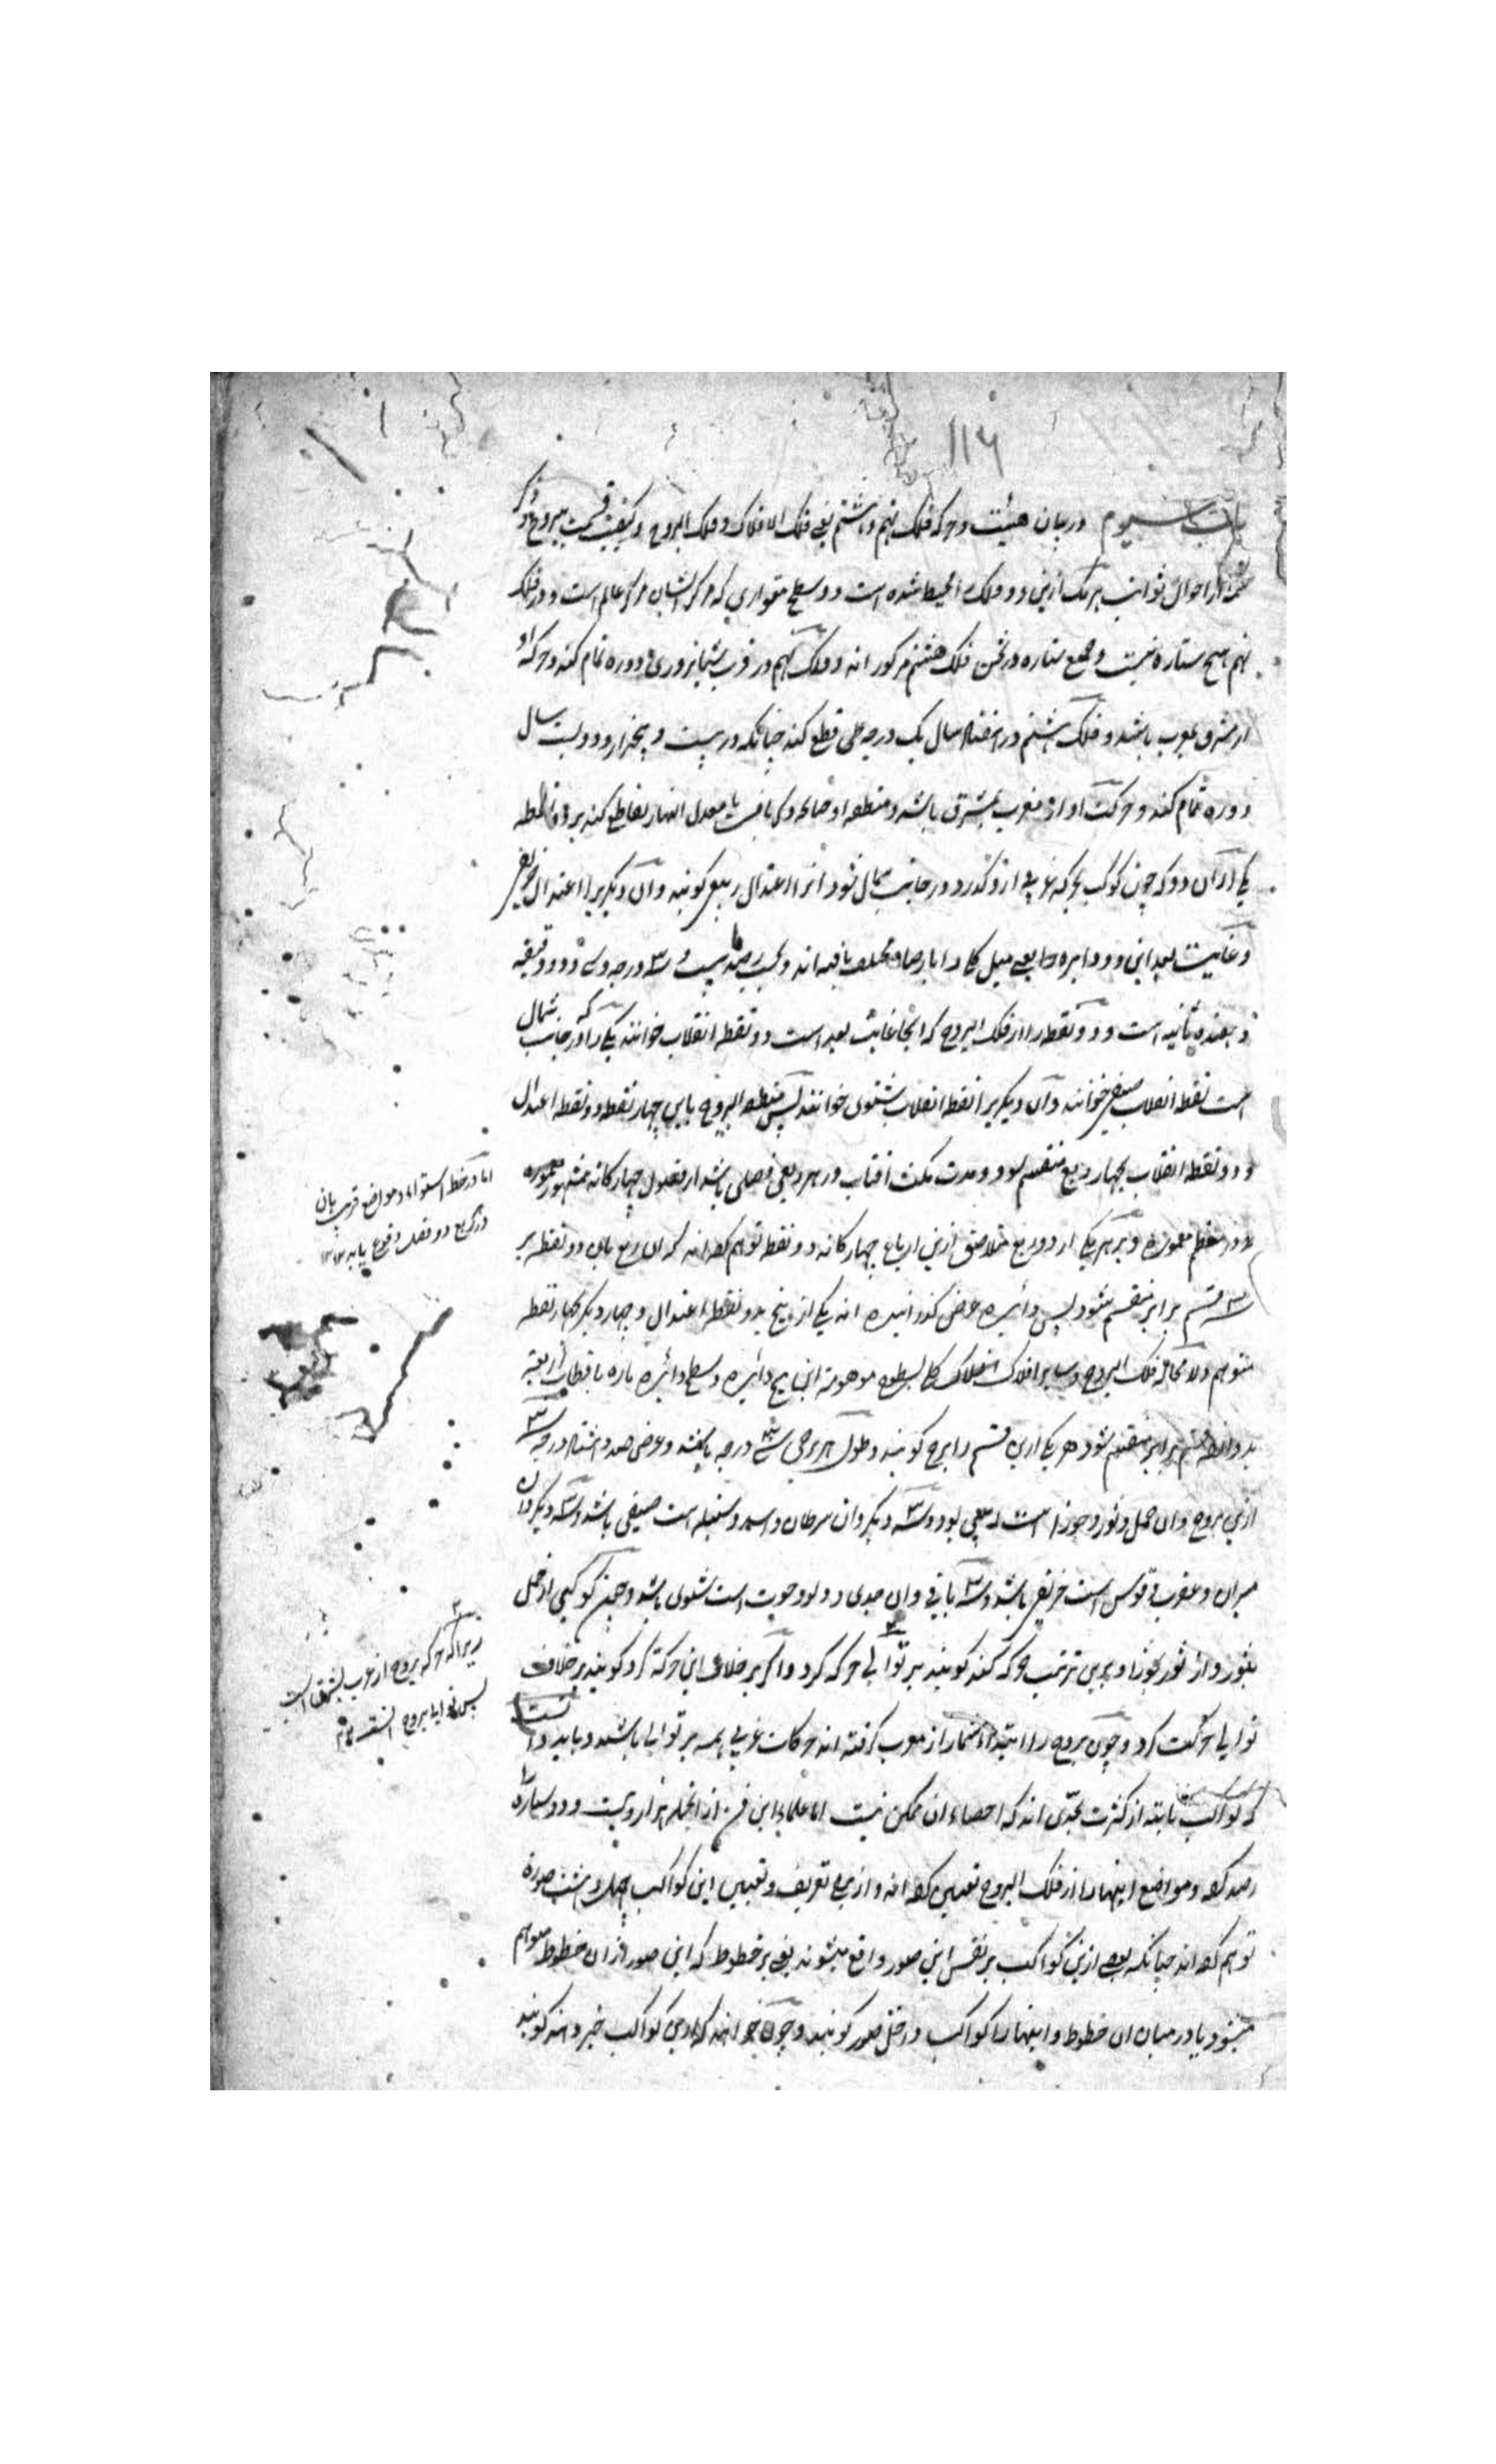 ۱۱۶
باب سیوم در بیان هیئت و حرکة فلک نهم و هشتم یعنی فلک الافلاک و فلک البروج و کیفیت قسمت ببروج و ذکر
از احوال ثوابت هر یک ازین دو فلک را محیط شده است دو سطح متوازی که مرکز ایشان مرکز عالم است و در فلک
نهم هیچ ستاره نیست و جمیع ستاره در ثخن فلک هشتم مرکوز اند و فلک نهم در قرب شبانروزی دوره تمام کند و حرکة او
از مشرق بمغرب باشد و فلک هشتم در هفتاد سال یک درجه طی قطع کند چنانکه در بیست و پنجهزار و دویست سال
دوره تمام کند و حرکت او از مغرب بمشرق باشد و منطقه او با معدل النهار تقاطع کند بر دو نقطه
یکی از آن دو که چون کوکب بحرکة غربی ازو گذرد در جانب شمال شود انرا اعتدال ربیعی گویند و آن دیگریرا اعتدال خریفی
و غایت بعد این دو دایره یعنی میل کلی را بارصاد مختلف یافته اند و بیست و ۳ درجه و سی و دو دقیقه
و هفده ثانیه است و دو نقطه را از فلک البروج که انجا غایت بعد است دو نقطه انقلاب خوانند یکی را که در جانب شمال
است نقطه انقلاب صیفی خوانند و آن دیگریرا نقطه انقلاب شتوی خوانند پس منطقة البروج باین چهار نقطه دو نقطه اعتدال
و دو نقطه انقلاب بچهار ربع منقسم بود و مدت مکث افتاب در هر ربعی فصلی باشد از فصول چهارگانه مشهوره
در معظم معموره و بر هر یکی از دو ربع متلاصق ازین ارباع چهارگانه دو نقطه توهم کرده اند که ان ربع بان دو نقطه بر
۳ قسم برابر منقسم شود پس دائره عرضی گذرانیده اند یکی ازین پنج بدو نقطه اعتدال و چهار دیگر بچهار نقطه
متوهم ولا محاله فلک البروج و سایر افلاک بسطوح موهومه این پنج دائره و سطح دائره ماره باقطاب اربعه
بدوازده قسم برابر منقسم شود هر یکی ازین قسم را برج گویند و طول هر برجی سی درجه باشد و عرض صد و هشتاد درجه ۳
ازین بروج و ان حمل و ثور و جوزا است ربیعی بود و ۳ دیگر و ان سرطان و اسد و سنبله است صیفی باشد و ۳ دیگر و ان
میزان و عقرب و قوس است خریفی باشد و ۳ باقی و ان جدی و دلو و حوت است شتوی باشد و چون کوکبی از حمل
بثور و از ثور بجوزا و برین ترتیب حرکه کند گویند بر توالی حرکه کرد و اگر بر خلاف این حرکه کرد گویند بر خلاف
توالی حرکت کرد و چون بروج را ابتداء شمار از مغرب گرفته اند حرکات غربی همه بر توالی باشد و باید دانست
که کواکب ثابته از کثرت بحدی اند که احصاء ان ممکن نیست اما علماء این فن از انجمله هزار و بیست و دو ستاره
رصد کرده و مواضع اینها را از فلک البروج تعیین کرده اند و از برای تعریف و تعیین این کواکب چهل و هشت صورة
توهم کرده اند چنانکه بعضی ازین کواکب بر نفس این صور واقع میشوند یعنی بر خطوط که این صور از ان خطوط متوهم
میشود یا در میان ان خطوط و اینها را کواکب داخل صور گویند و چون خواهند که ازین کواکب خبر دهند گویند
اما در خط استوا و مواضع قریب بان
در هر ربع دو فصل وقوع یابد ۱۲
زیرا که حرکه بروج از مغرب بمشرق است